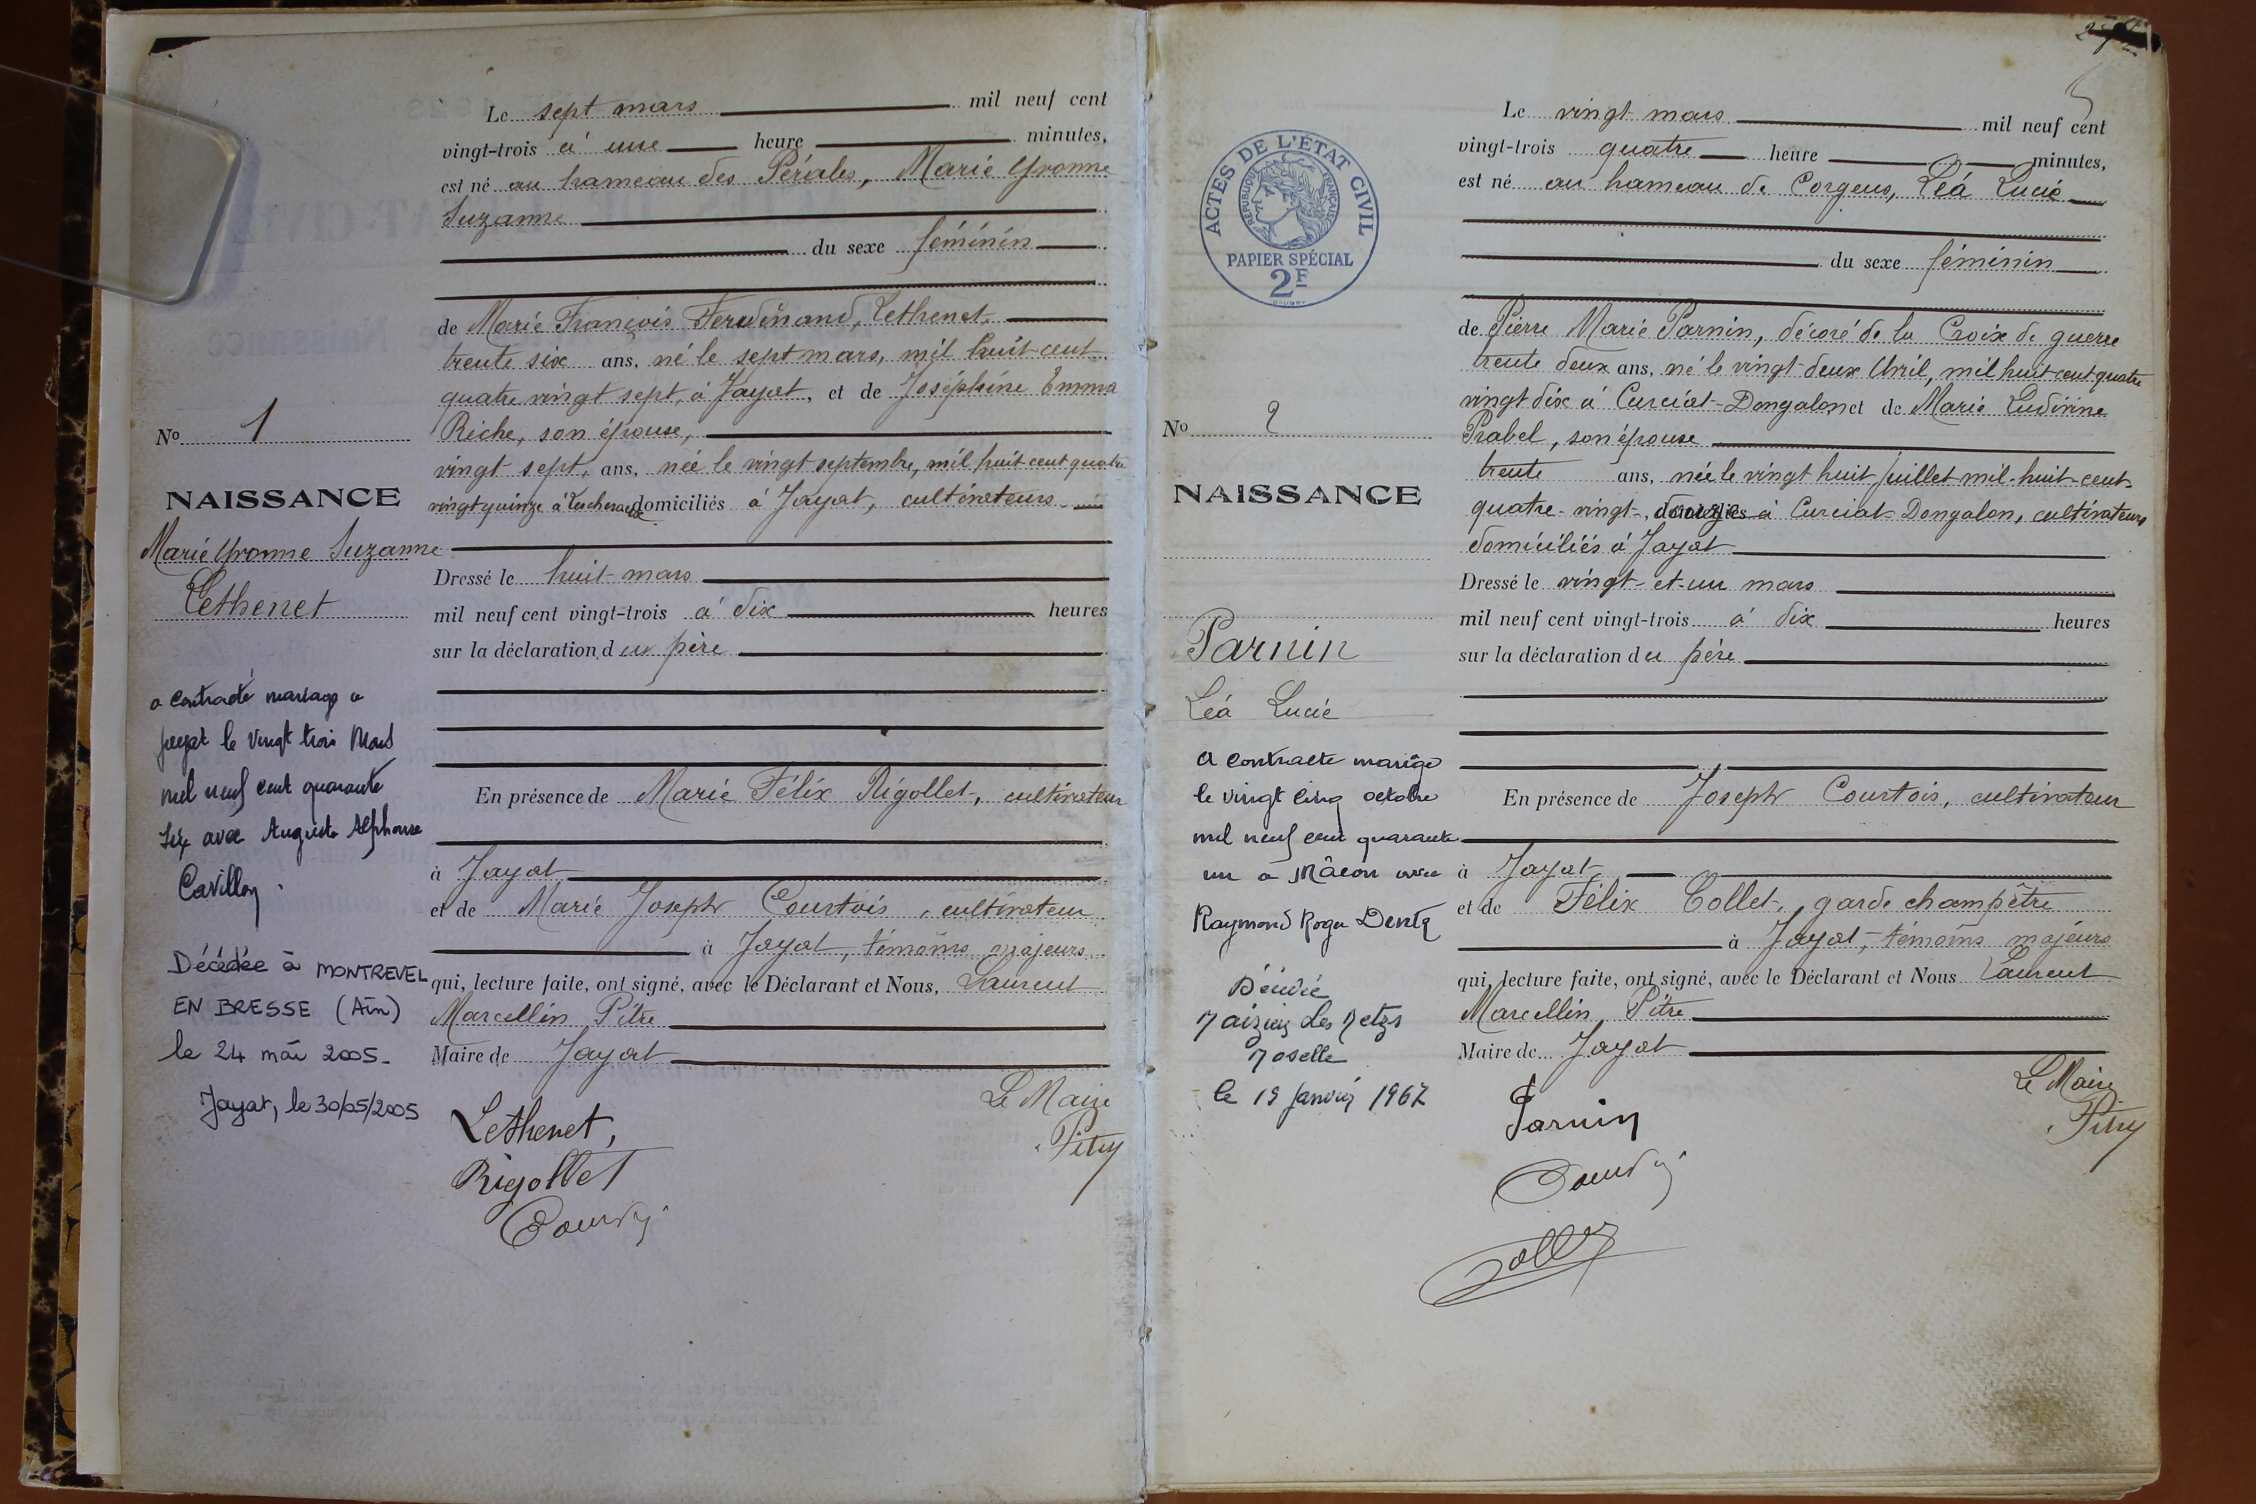 Le sept mars mil neuf cent
vingt-trois à une heure minutes,
est né au hameau des Périales, Marie Yvonne
Suzanne
du sexe féminin
de Marie François Ferdinand, Lethenet,
trente six ans, né le sept mars, mil huit cent
quatre vingt sept, à Jayat, et de Joséphine Emma
Riche, son épouse,
vingt sept, ans, née le vingt septembre, mil huit cent quatre
vingt quinze à Lescheroux domiciliés à Jayat, cultivateurs
Dressé le huit mars
mil neuf cent vingt-trois à dix heures
sur la déclaration du père
En présence de Marie Félix Rigollet, cultivateur
à Jayat
et de Marie Joseph Courtois, cultivateur
à Jayat, témoins majeurs
qui, lecture faite, ont signé, avec le Déclarant et Nous, Laurent
Marcellin Pitre
Maire de Jayat
Le Maire
Lethenet,
Rigollet
No 1
NAISSANCE
Marie Yvonne Suzanne
Lethenet
a contracté mariage a
Jayat le vingt trois Mars
mil neuf cent quarante
six avec Auguste Alphonse
Cavillon
Décédée à MONTREVEL
EN BRESSE (Ain)
le 24 mai 2005.
Jayat, le 30/05/2005
Le vingt mars mil neuf cent
vingt-trois quatre heure minutes,
est né au hameau de Corgeus, Léa Lucie
du sexe féminin
de Pierre Marie Parnin, décoré de la Croix de guerre
trente deux ans, né le vingt-deux Avril, mil huit cent quatre
vingt dix à Curciat-Dongalon et de Marie Ludivine
Prabel, son épouse
trente ans, née le vingt huit Juillet mil-huit-cent-
quatre-vingt-douze à Curciat-Dongalon, cultivateurs
domiciliés à Jayat
Dressé le vingt-et-un mars
mil neuf cent vingt-trois à dix heures
sur la déclaration du père
En présence de Joseph Courtois, cultivateur
à Jayat
et de Félix Collet, garde champêtre
à Jayat, témoins majeurs
qui, lecture faite, ont signé, avec le Déclarant et Nous Laurent
Marcellin Pitre
Maire de Jayat
Le Maire
Parnin
ACTES DE L'ÉTAT CIVIL
RÉPUBLIQUE FRANÇAISE
PAPIER SPÉCIAL
2F
No 2
NAISSANCE
Parnin
Léa Lucie
a contracte mariage
le vingt cinq octobre
mil neuf cent quarante
un a Mâcon avec
Raymond Roger
Maizières Les Metz
Moselle
le 19 Janvier 1967